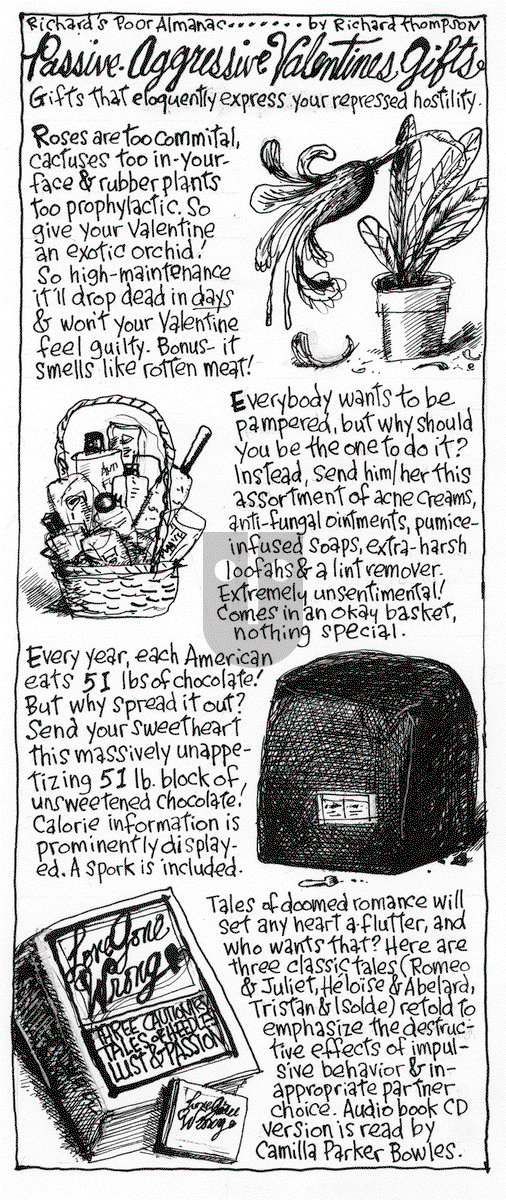 Richard's Poor Almanac....... by Richard Thompson
Passive-Aggressive Valentines Gifts
Gifts that eloquently express your repressed hostility.
Roses are too commital,
cactuses too in-your-
face & rubber plants
too prophylactic. So
give your Valentine
an exotic orchid!
So high-maintenance
it'll drop dead in days
& won't your Valentine
feel guilty. Bonus- it
smells like rotten meat!
Everybody wants to be
pampered, but why should
you be the one to do it?
Instead, send him/her this
assortment of acne creams,
anti-fungal ointments, pumice-
infused soaps, extra-harsh
loofahs & a lint remover.
Extremely unsentimental!
Comes in an okay basket,
nothing special.
Every year, each American
eats 51 lbs of chocolate!
But why spread it out?
Send your sweetheart
this massively unappe-
tizing 51 lb. block of
unsweetened chocolate!
Calorie information is
prominently display-
ed. A spork is included.
Tales of doomed romance will
set any heart a-flutter, and
who wants that? Here are
three classic tales (Romeo
& Juliet, Heloise & Abelard,
Tristan & Isolde) retold to
emphasize the destruc-
tive effects of impul-
sive behavior & in-
appropriate partner
choice. Audio book CD
version is read by
Camilla Parker Bowles.
Love Gone
Wrong
THREE CAUTIONARY
TALES OF
LUST & PASSION
Love Gone
Wrong